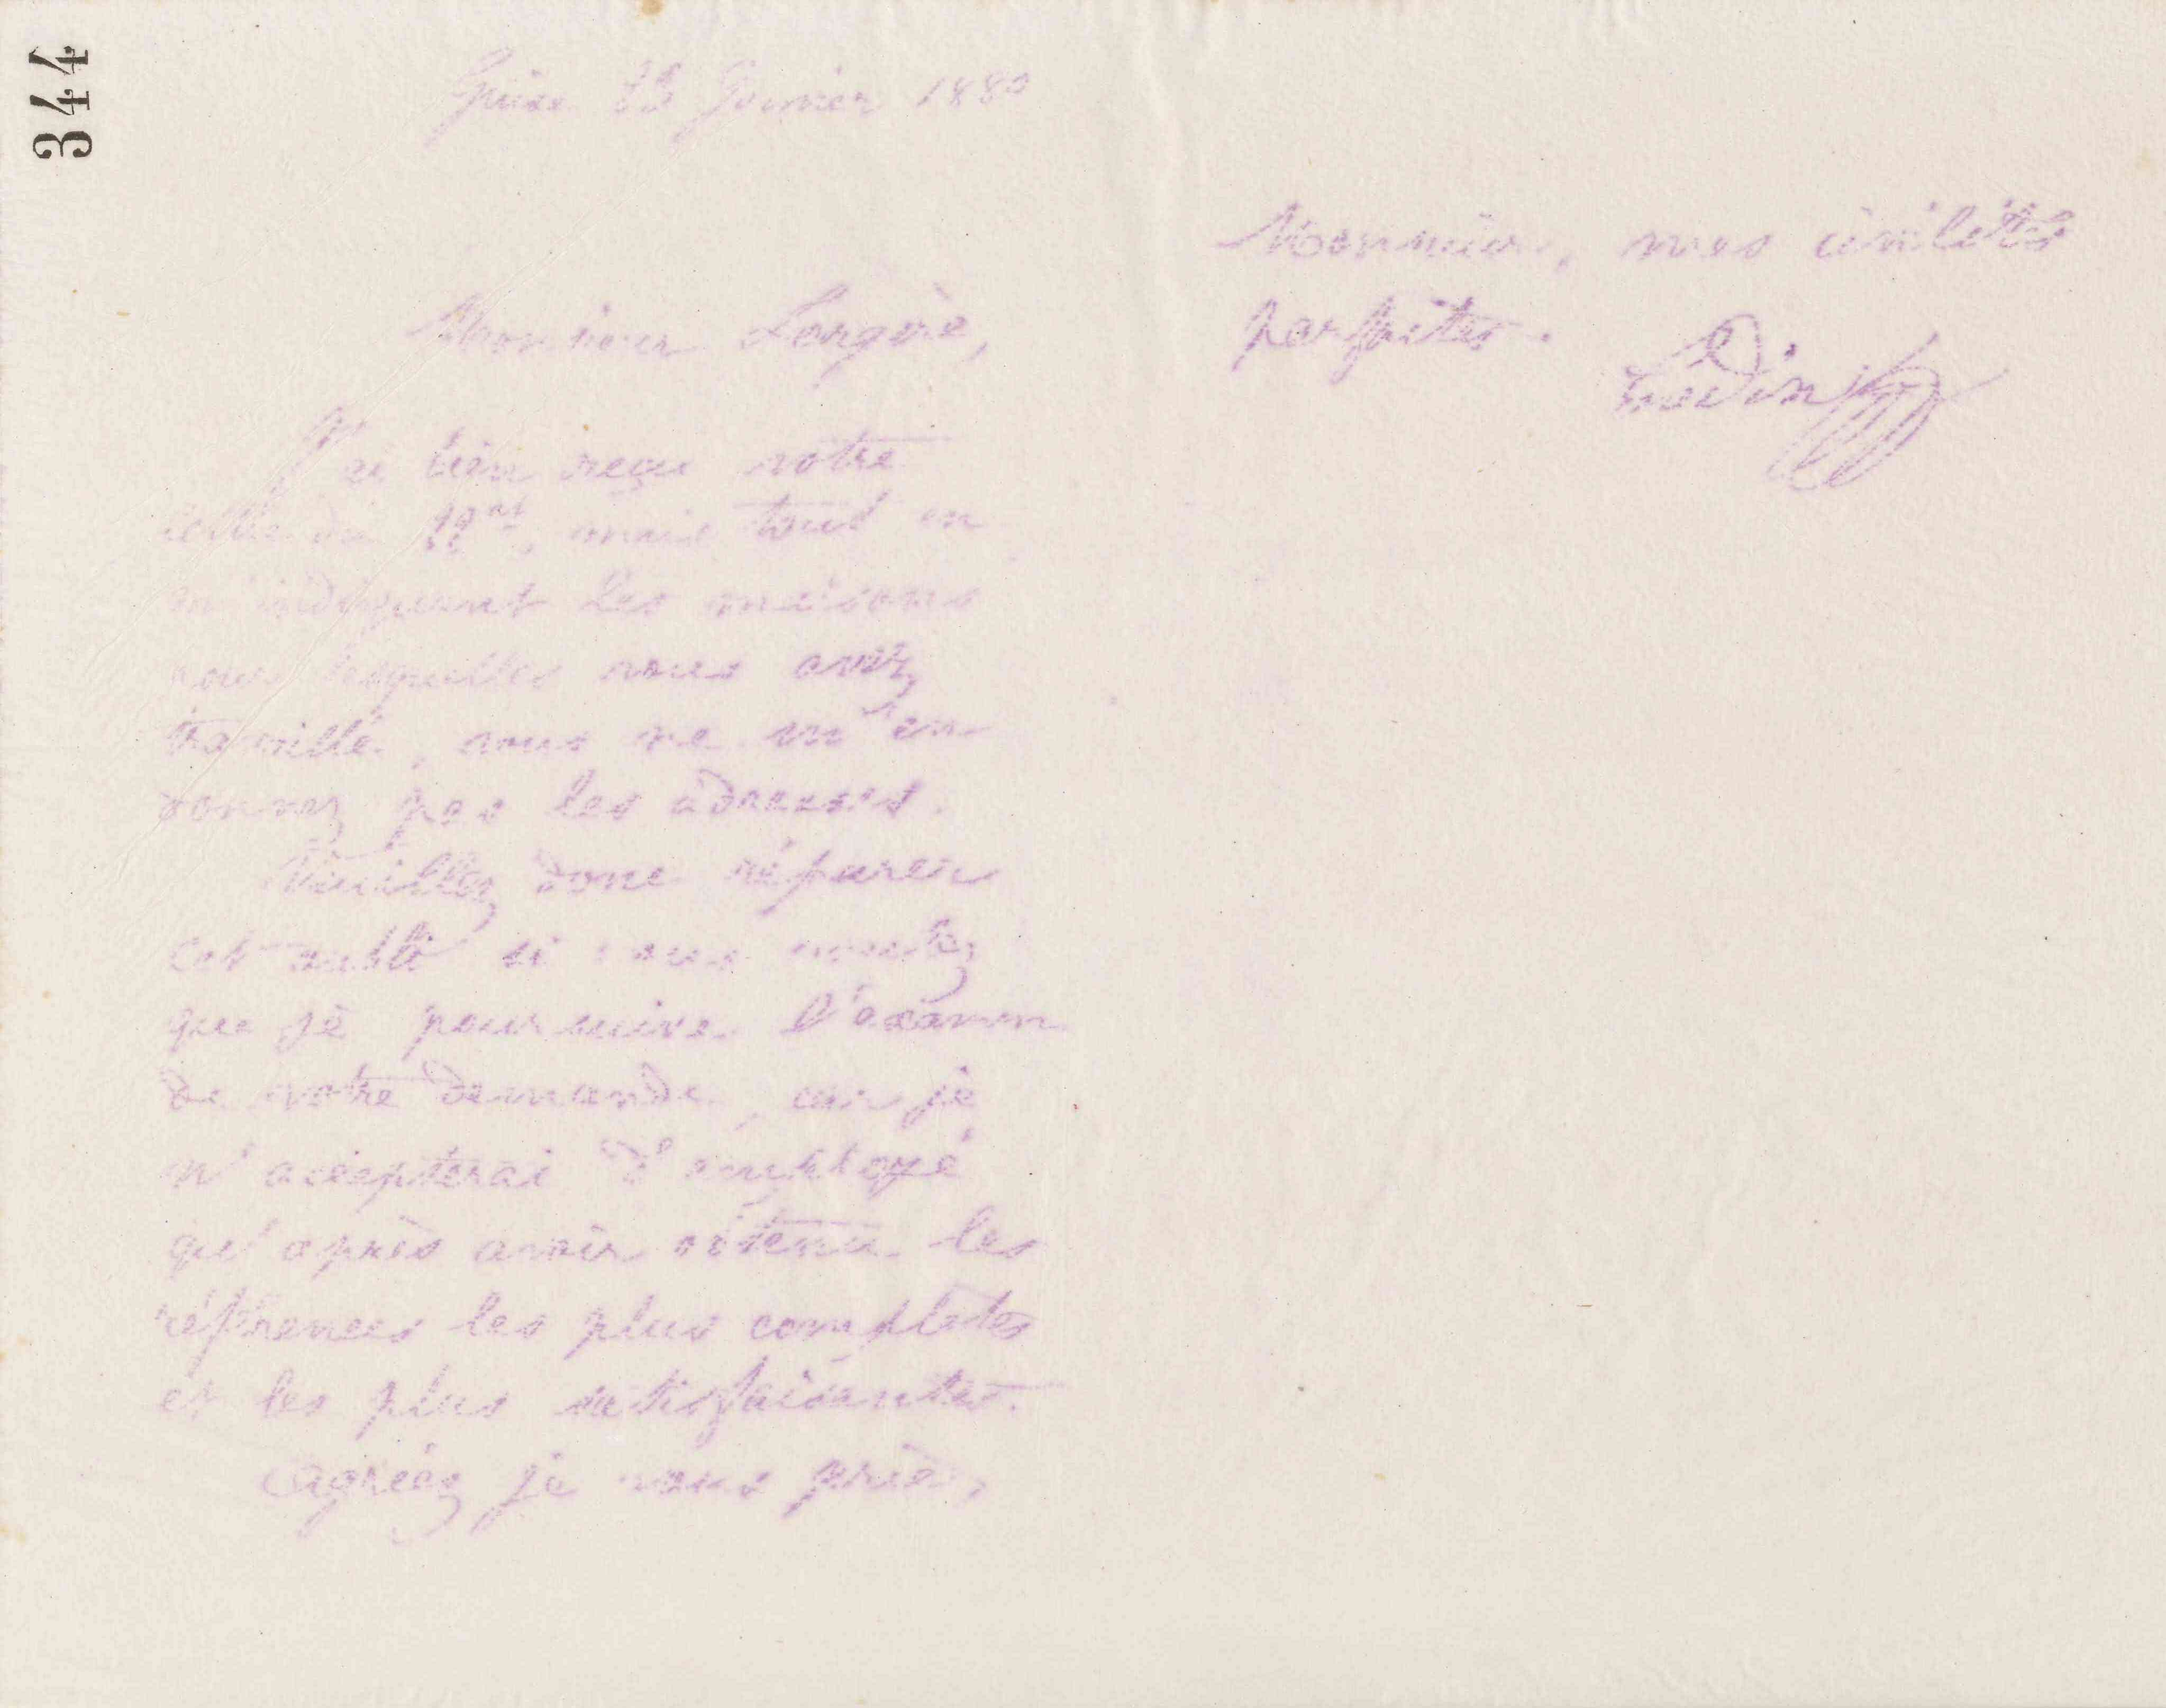 344
Guise 23 Janvier 1880
Monsieur
J'ai bien reçu votre
lettre du 22 ct, mais tout en
m'indiquant les maisons
pour lesquelles vous avez
travaillé, vous ne m'en
donnez pas les adresses.
Veuillez donc réparer
cet oubli si vous voulez
que je poursuive l'examen
de votre demande, car je
n'accepterai d'employé
qu'après avoir obtenu les
références les plus complètes
et les plus satisfaisantes.
Agréez je vous prie,
Monsieur, mes civilités
parfaites.
Godin